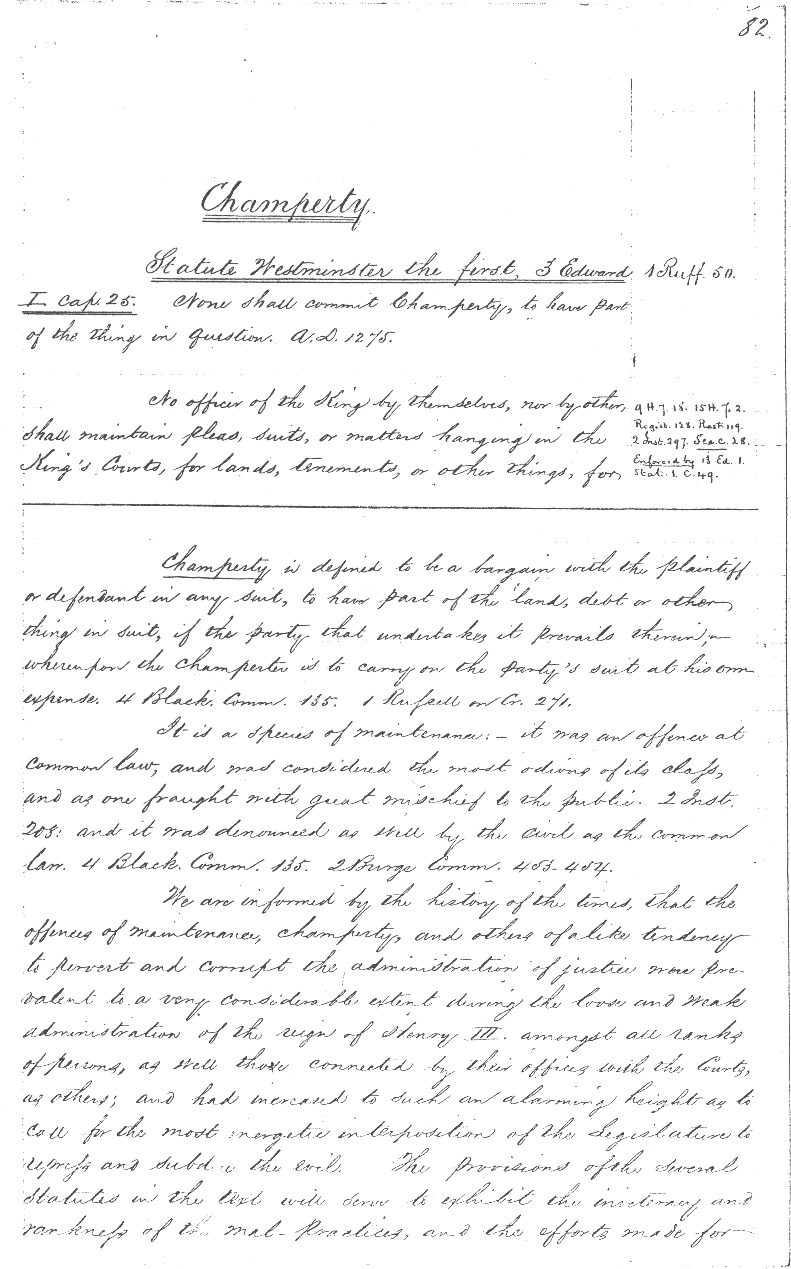 82.
Champerty.
Statute Westminster the first, 3 Edward
1 Ruff. 50.
I cap. 25. None shall commit Champerty, to have part
of the thing in question. A.D. 1275.
No officer of the King by themselves, nor by other,
shall maintain pleas, suits, or matters hanging in the
King's Courts, for lands, tenements, or other things, for
9 H. 7. 18. 15 H. 7. 2.
Regist. 128. Rast. 119.
2 Inst. 297. See c. 28.
Enforced by 13 Ed. 1.
Stat. 1. C. 49.
Champerty is defined to be a bargain with the plaintiff
or defendant in any suit, to have part of the land, debt or other
thing in suit, if the party that undertakes it prevails therein;—
whereupon the champerter is to carry on the party's suit at his own
expense. 4 Black. Comm. 135. 1 Russell on Cr. 271.
It is a species of maintenance:— it was an offence at
common law, and was considered the most odious of its class,
and as one fraught with great mischief to the public. 2 Inst.
208: and it was denounced as well by the civil as the common
law. 4 Black. Comm. 135. 2 Burge Comm. 453-454.
We are informed by the history of the times, that the
offences of maintenance, champerty, and others of a like tendency
to pervert and corrupt the administration of justice were pre-
valent to a very considerable extent during the loose and weak
administration of the reign of Henry III. amongst all ranks
of persons, as well those connected by their offices with the Courts,
as others; and had increased to such an alarming height as to
call for the most energetic interposition of the Legislature to
repress and subdue the evil. The provisions of the several
statutes in the text will serve to exhibit the inveteracy and
rankness of the mal-practices, and the efforts made for